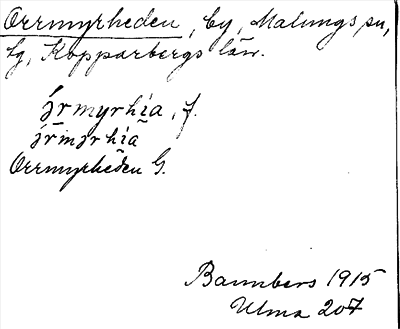 Orrmyrheden, by, Malungs sn,
Lg, Kopparbergs län.
ǫ́rmyrhìa, f.
Orrmyrheden G.
Bannbers 1915
Ulma 207